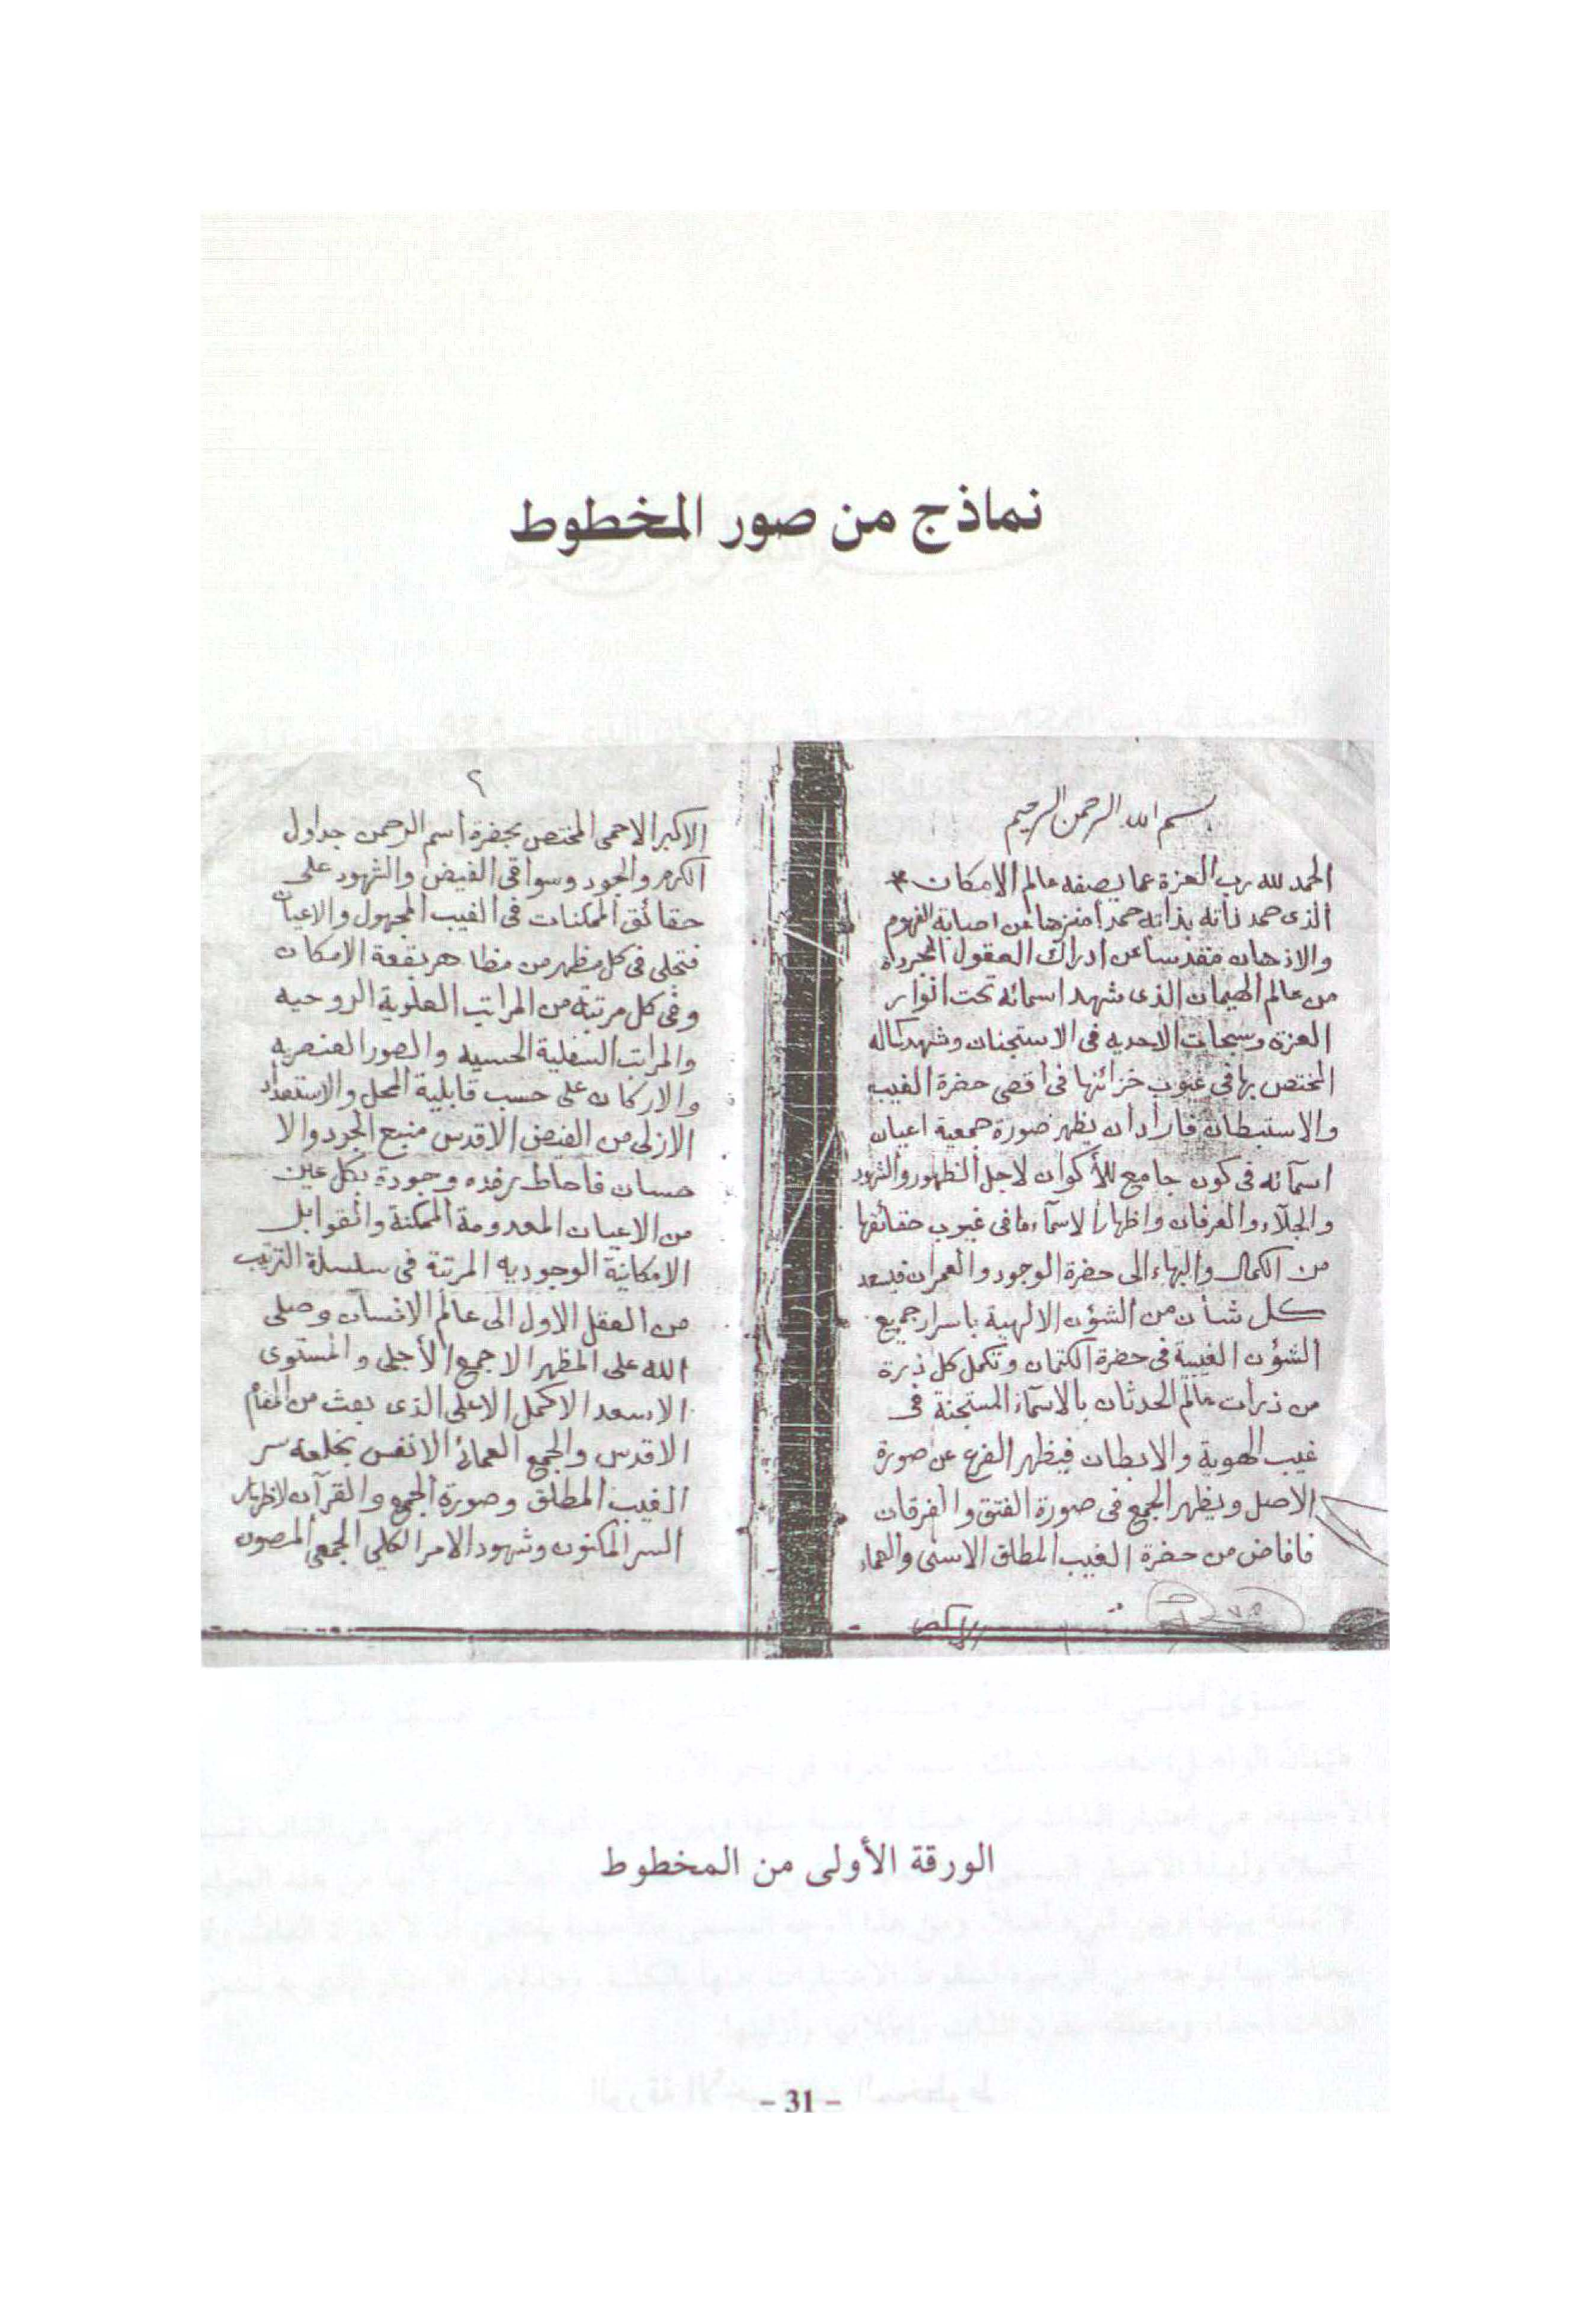 نماذج من صور المخطوط
بسم الله الرحمن الرحيم
الحمد لله رب العزة عما يصفه عالم الامكان
الذى حمد ذاته بذاته حمدا منزها عن اصابة الفهوم
والاذهان مقدسا عن ادراك العقول المجرده
من عالم الهيمان الذى شهد اسمائه تحت انوار
العزة وسبحات الاحديه فى الاستجنان وشهد كماله
المختص بها فى غيوب خزائنها فى أقصى حضرة الغيب
والاستبطان فأراد أن يظهر صورة جمعية اعيان
اسمآئه فى كون جامع للأكوان لاجل الظهور والشهود
والجلآء والعرفان واظهارا لاسمآء ما فى غيوب حقائقها
من الكمال والبهاء الى حضرة الوجود والعمران فيسعد
كل شأن من الشؤن الالهية باسرار جميع
الشؤن الغيبية فى حضرة الكتمان وتكمل كل ذرة
من ذرات عالم الحدثان بالاسمآء المستجنة فى
غيب الهوية والابطان فيظهر الفرع عن صورة
الاصل ويظهر الجمع فى صورة الفتق والفرقان
فافاض من حضرة الغيب المطلق الاسنى والعماء
الاكبر
٢
الاكبر الاحمى المختص بحضرة اسم الرحمن جداول
الكرم والجود وسواقى الفيض والشهود على
حقائق الممكنات فى الغيب المجهول والاعيان
فتجلى فى كل مظهر من مظاهر بقعة الامكان
وفى كل مرتبة من المراتب العلوية الروحيه
والمراتب السفلية الحسيه والصور العنصريه
والاركان على حسب قابلية المحل والاستعداد
الازلى من الفيض الاقدس منبع الجود والا
حسان فاحاط برفده وجودة بكل عين
من الاعيان المعدومة الممكنة والقوابل
الامكانية الوجوديه المرتبة فى سلسلة الترتيب
من العقل الاول الى عالم الانسان وصلى
الله على المظهر الاجمع الأجلى والمستوى
الاسعد الاكمل الاعلى الذى بعث من المقام
الاقدس والجمع العمائى الانفس بخلعة سر
الغيب المطلق وصورة الجمع والقرآن لاظهار
السر المكنون وشهود الامر الكلي الجمعى المصون
الورقة الأولى من المخطوط
- 31 -